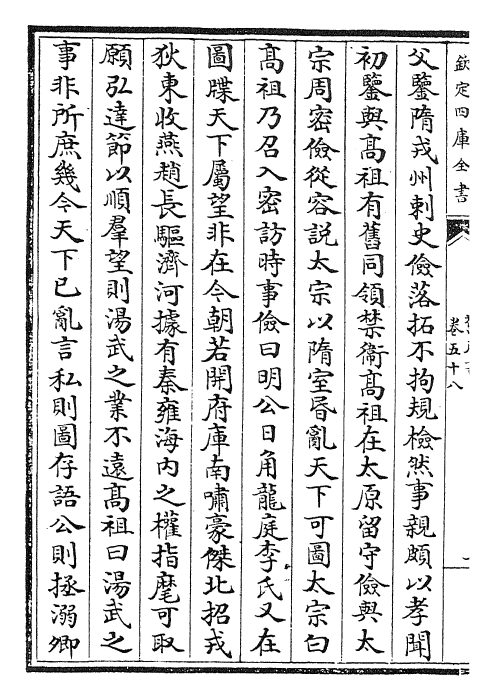 欽定四庫全書
卷五十八
父鑒隋戎州刺史儉落拓不拘規檢然事親頗以孝聞
初鑒與髙祖有舊同領禁衛髙祖在太原留守儉與太
宗周密儉從容説太宗以隋室昬亂天下可圖太宗白
髙祖乃召入密訪時事儉曰明公日角龍庭李氏又在
圖牒天下屬望非在今朝若開府庫南嘯豪傑北招戎
狄東收燕趙長驅濟河據有秦雍海内之權指麾可取
願弘達節以順羣望則湯武之業不逺髙祖曰湯武之
事非所庶幾今天下已亂言私則圖存語公則拯溺卿